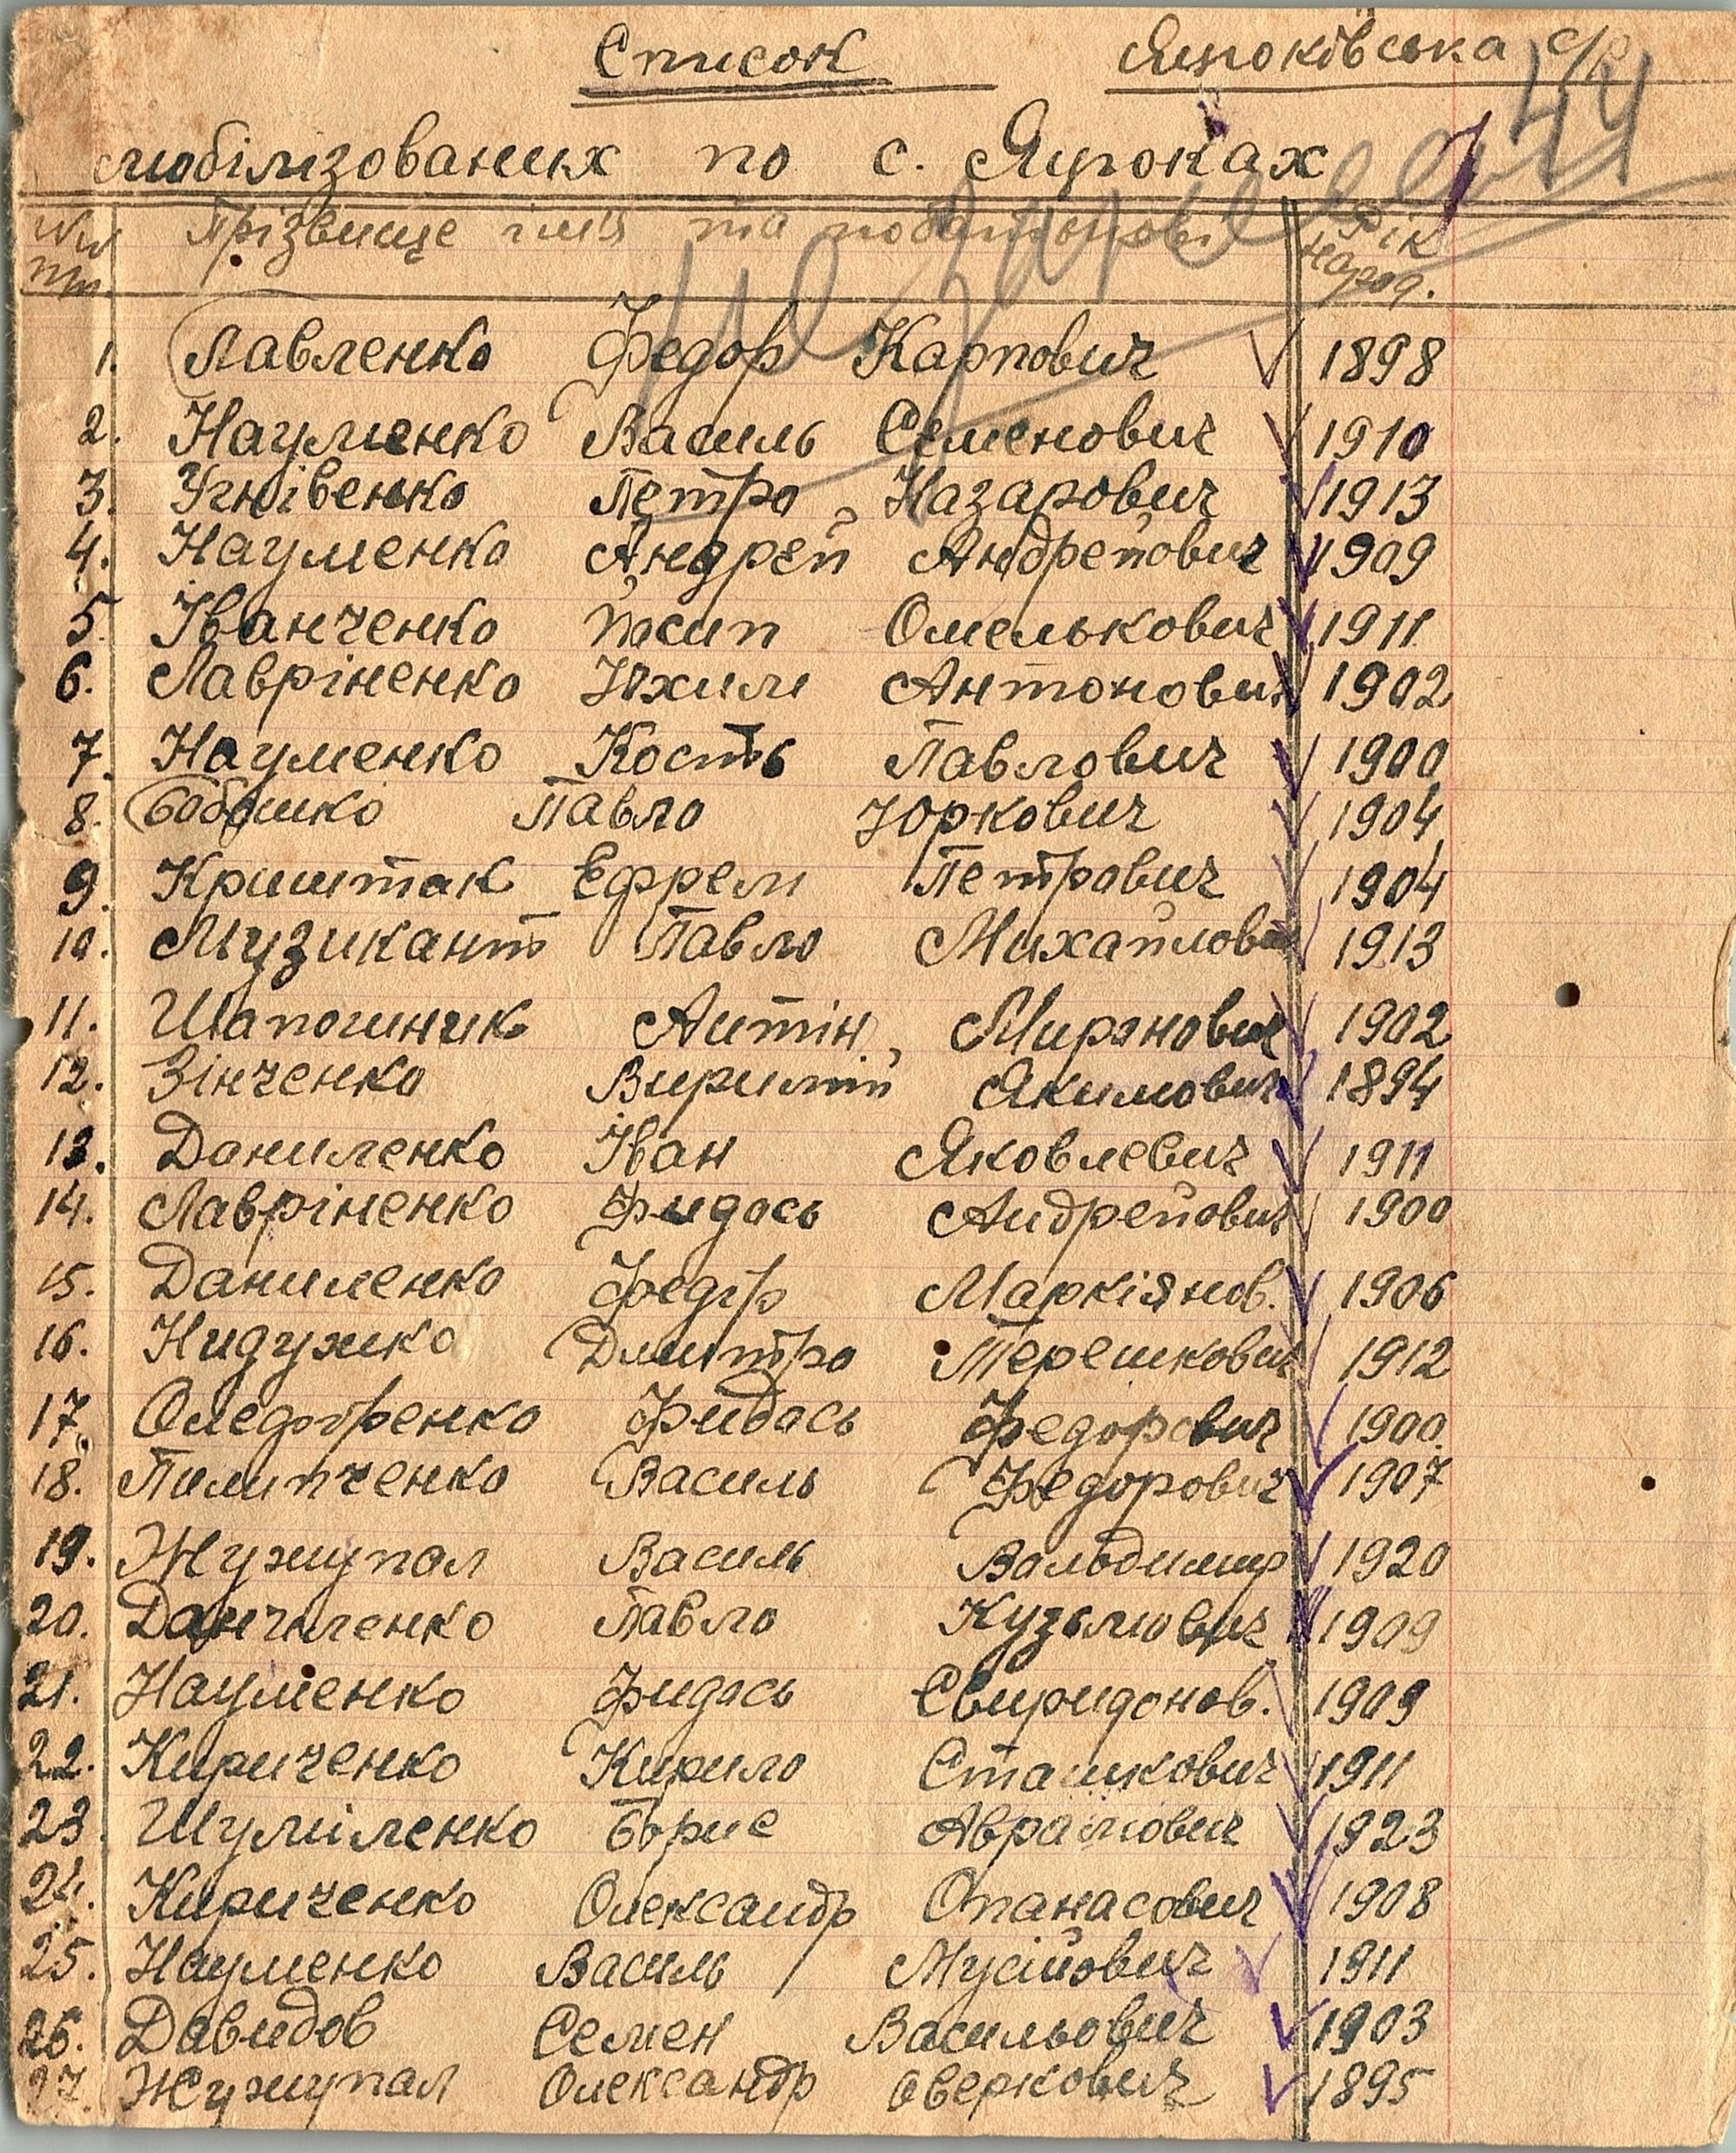 Список Яцюківська с/р
44
мобілізованих по с. Яцюках
№№ пп. Прізвище імя та побатькові Рік народ.
1. Павленко Федор Карпович 1898
2. Науменко Василь Семенович 1910
3. Угнівенко Петро Назарович 1913
4. Науменко Андрей Андрейович 1909
5. Іванченко Йосип Омелькович 1911
6. Лавріненко Юхим Антонович 1902
7. Науменко Кость Павлович 1900
8. Бобошко Павло Юркович 1904
9. Криштак Ефрем Петрович 1904
10. Музикант Павло Михайлович 1913
11. Шапошник Антін Миронович 1902
12. Зінченко Якимович 1894
13. Даниленко Іван Яковлевич 1911
14. Лавріненко Фидось Андрейович 1900
15. Даниленко Федір Маркіянов. 1906
16. Нидужко Дмитро Терешкович 1912
17. Фидось Федорович 1900
18. Пилипченко Василь Федорович 1907
19. Жужупал Василь Вальодимир 1920
20. Данчиленко Павло Кузьмович 1909
21. Науменко Фидось Свиридонов. 1909
22. Кириченко Кирило Сташкович 1911
23. Шуміленко Борис Аврамович 1923
24. Кириченко Олександр Опанасович 1908
25. Науменко Василь Мусійович 1911
26. Давидов Семен Васильович 1903
27. Жужупал Олександр Оверкович 1895